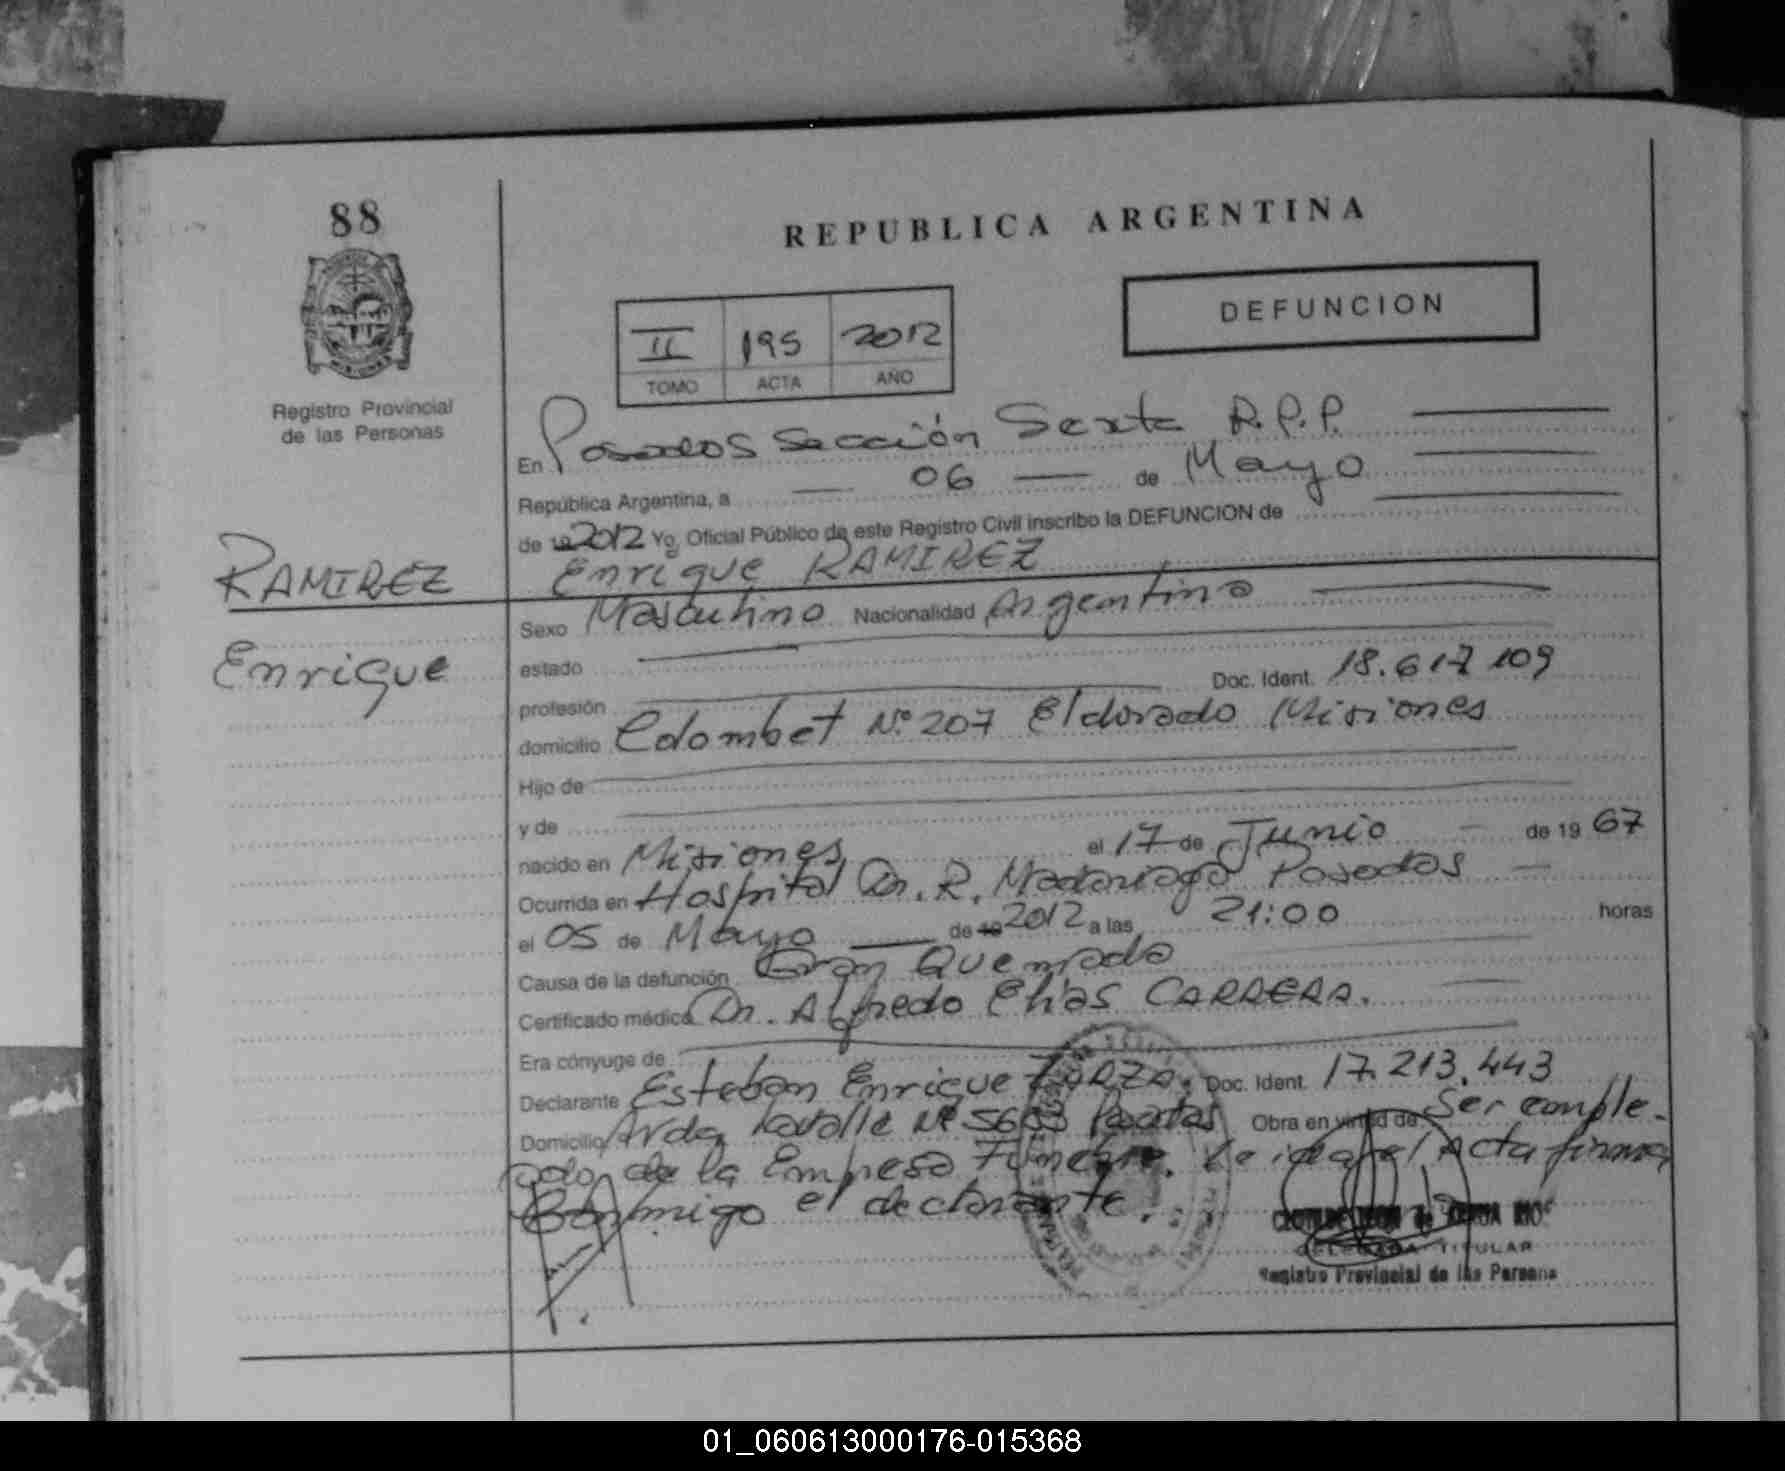 88
REPUBLICA ARGENTINA
DEFUNCION
II 195 2012
TOMO ACTA AÑO
Registro Provincial
de las Personas
En Posadas Sección Sexta R.P.P.
República Argentina, a 06 de Mayo
de 19 2012 Yo, Oficial Público de este Registro Civil inscribo la DEFUNCION de
RAMIREZ
Enrique RAMIREZ
Sexo Masculino Nacionalidad Argentina
Enrique
estado
profesión Doc. Ident. 18.617 109
domicilio Colombet Nº 207 Eldorado Misiones
Hijo de
y de
nacido en Misiones el 17 de Junio de 19 67
Ocurrida en Hospital Dr. R. Madariaga Posadas
el 05 de Mayo de 19 2012 a las 21:00 horas
Causa de la defunción Gran Quemado
Certificado médico Dr. Alfredo Elías CARRERA.
Era cónyuge de
Declarante Esteban Enrique Doc. Ident. 17.213.443
Domicilio Avda Lavalle Nº Posadas Obra en virtud de Ser emple-
ado de la Empresa Funebre. Leida el Acta firma
Conmigo el declarante.
DELEGADA TITULAR
Registro Provincial de las Persona
01_060613000176-015368